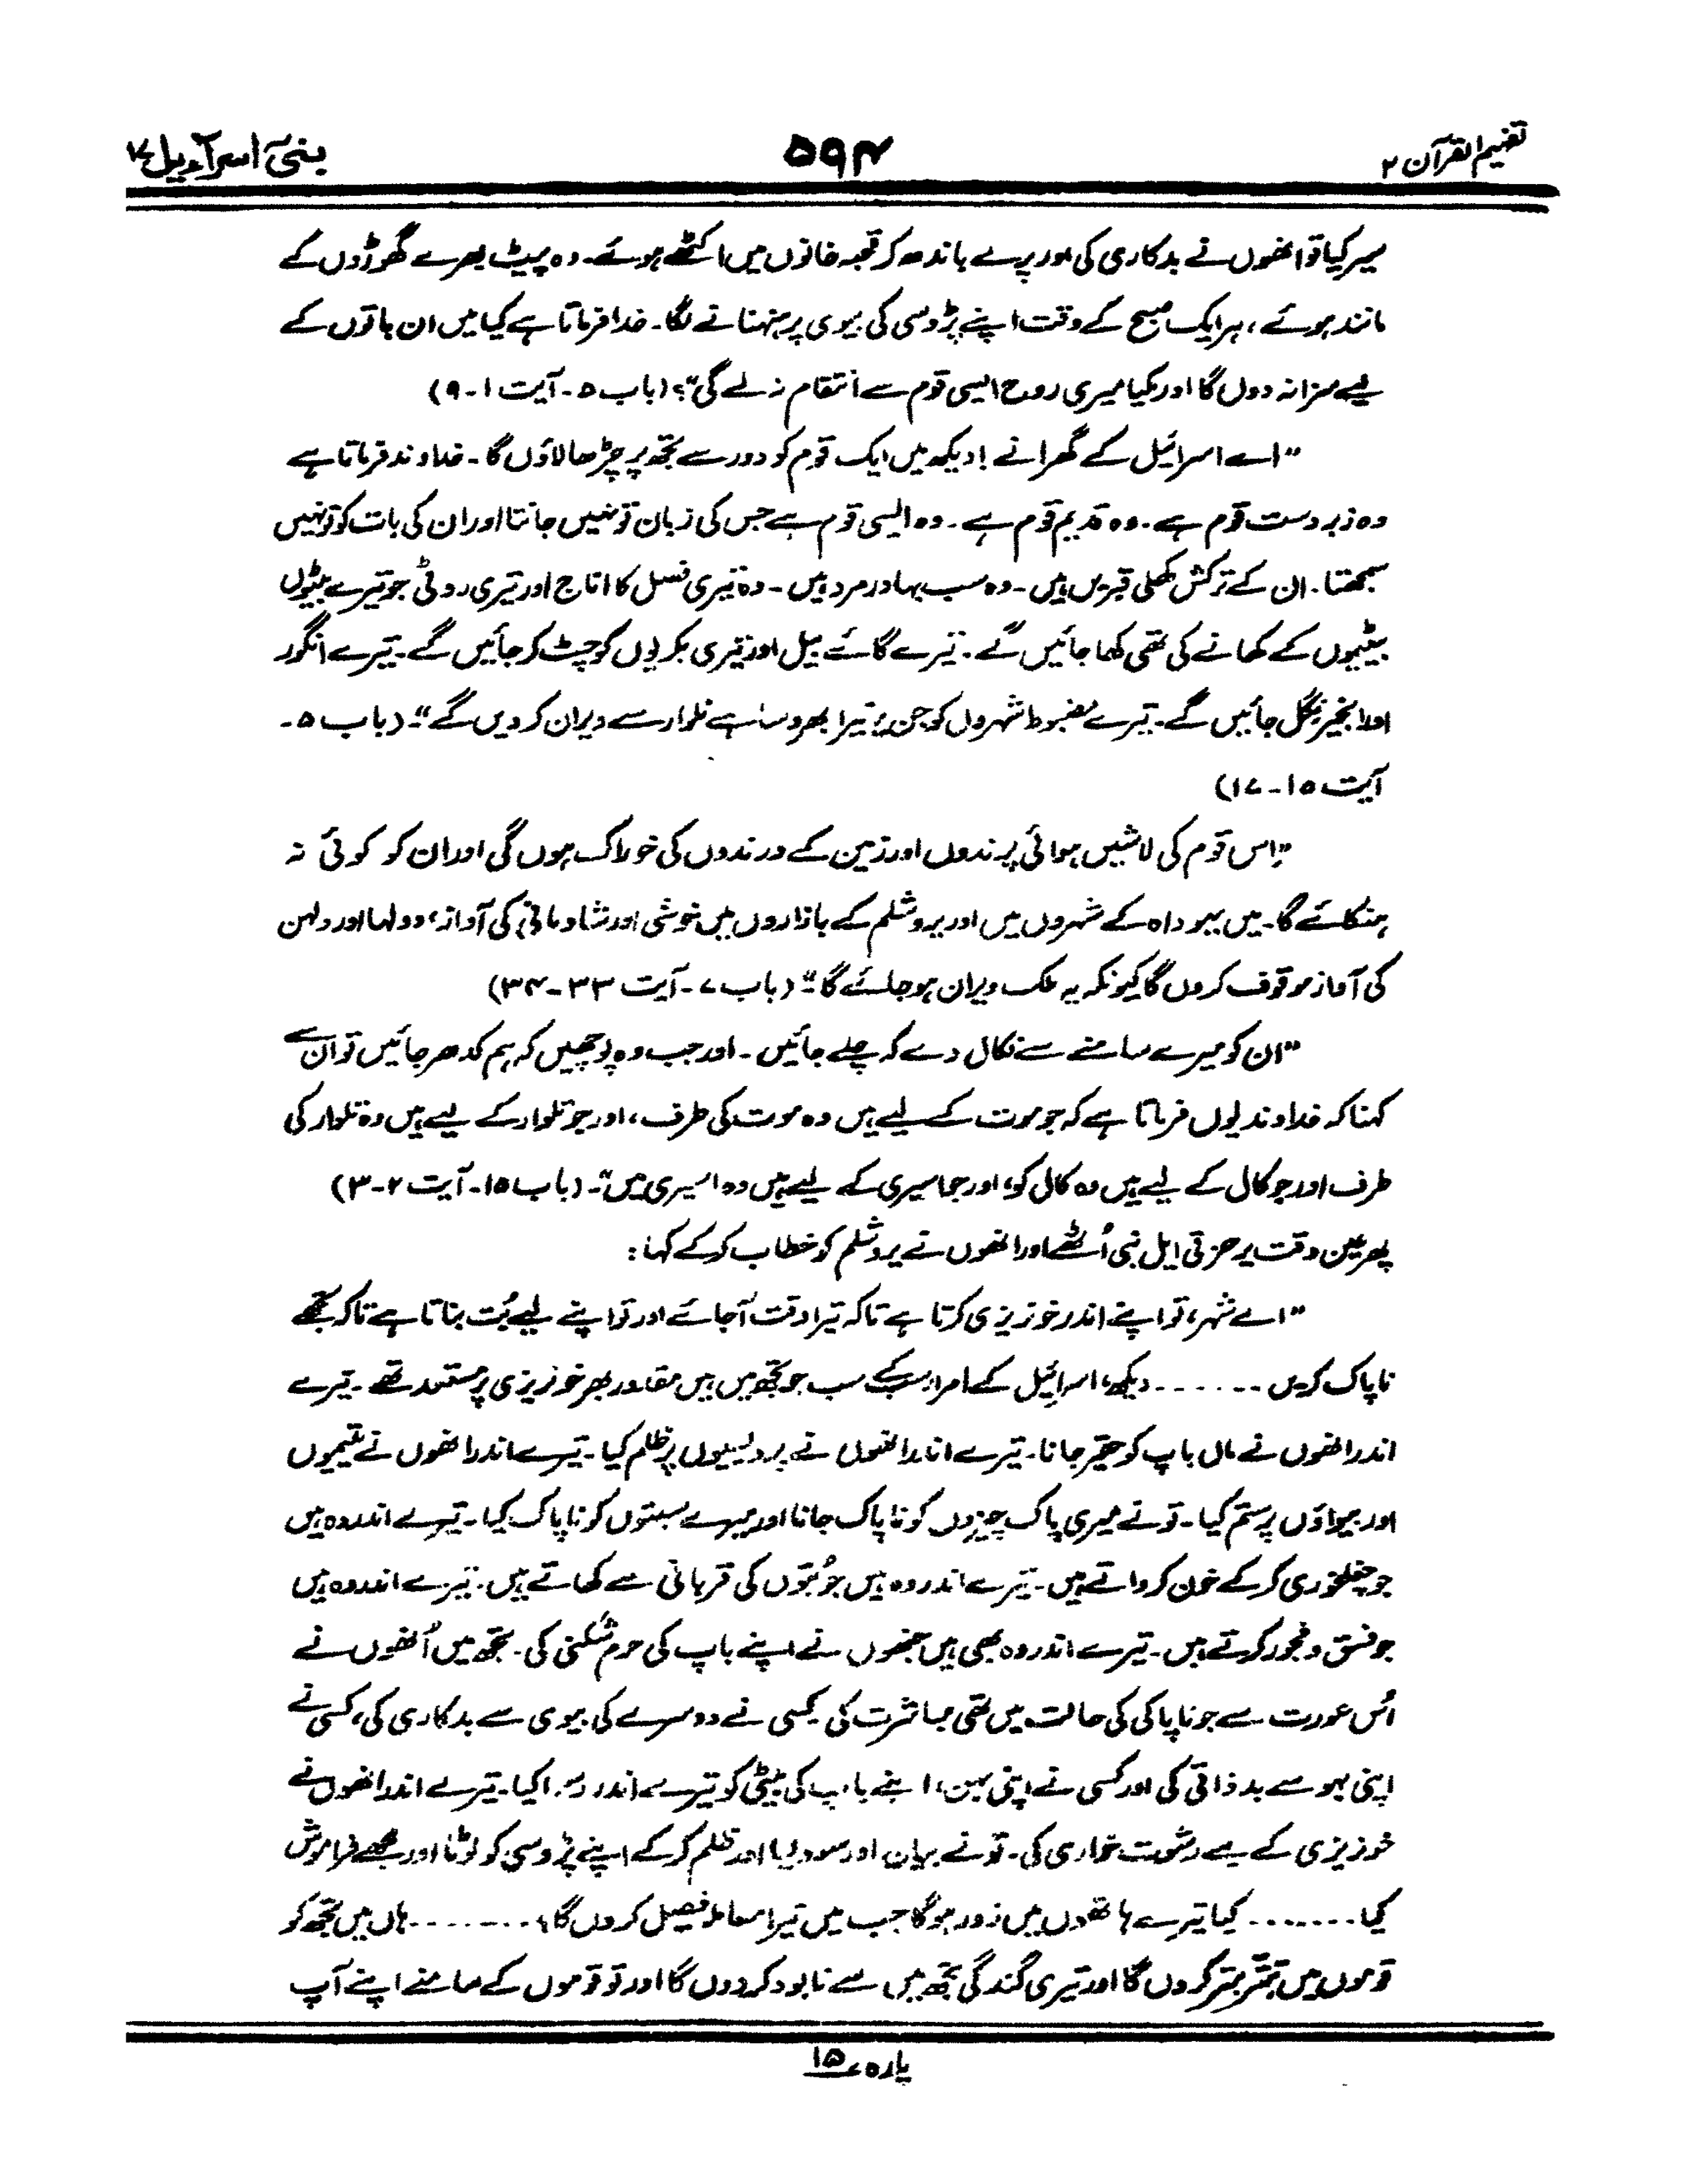 تفہیم القرآن ۲
۵۹۴
بنیٓ اسرآءیل ۱۷
سیر کیا تو انھوں نے بدکاری کی اور پرے باندھ کر قحبہ خانوں میں اکٹھے ہوئے۔ وہ پیٹ بھرے گھوڑوں کے
مانند ہوئے، ہر ایک صبح کے وقت اپنے پڑوسی کی بیوی پر ہنہنانے لگا۔ خدا فرماتا ہے کیا میں ان باتوں کے
لیے سزا نہ دوں گا اور کیا میری روح ایسی قوم سے انتقام نہ لے گی“؟ (باب ۵۔ آیت ۱۔۹)
”اے اسرائیل کے گھرانے! دیکھ میں ایک قوم کو دور سے تجھ پر چڑھا لاؤں گا۔ خداوند فرماتا ہے
وہ زبردست قوم ہے۔ وہ قدیم قوم ہے۔ وہ ایسی قوم ہے جس کی زبان تو نہیں جانتا اور ان کی بات کو تو نہیں
سمجھتا۔ ان کے ترکش کھلی قبریں ہیں۔ وہ سب بہادر مرد ہیں۔ وہ تیری فصل کا اناج اور تیری روٹی جو تیرے بیٹوں
بیٹیوں کے کھانے کی تھی کھا جائیں گے۔ تیرے گائے بیل اور تیری بکریوں کو چٹ کر جائیں گے۔ تیرے انگور
اور انجیر نگل جائیں گے۔ تیرے مضبوط شہروں کو جن پر تیرا بھروسا ہے تلوار سے ویران کر دیں گے“۔ (باب ۵۔
آیت ۱۵۔۱۷)
”اِس قوم کی لاشیں ہوائی پرندوں اور زمین کے درندوں کی خوراک ہوں گی اور ان کو کوئی نہ
ہنکائے گا۔ میں یہوداہ کے شہروں میں اور یروشلم کے بازاروں میں خوشی اور شادمانی کی آواز، دولہا اور دلہن
کی آواز موقوف کروں گا کیونکہ یہ ملک ویران ہو جائے گا“۔ (باب ۷۔ آیت ۳۳۔۳۴)
”ان کو میرے سامنے سے نکال دے کہ چلے جائیں۔ اور جب وہ پوچھیں کہ ہم کدھر جائیں تو ان سے
کہنا کہ خداوند یوں فرماتا ہے کہ جو موت کے لیے ہیں وہ موت کی طرف، اور جو تلوار کے لیے ہیں وہ تلوار کی
طرف اور جو کال کے لیے ہیں وہ کال کو، اور جو اسیری کے لیے ہیں وہ اسیری میں“۔ (باب ۱۵۔ آیت ۲۔۳)
پھر عین وقت پر حزقی ایل نبی اُٹھے اور انھوں نے یروشلم کو خطاب کر کے کہا:
”اے شہر، تو اپنے اندر خونریزی کرتا ہے تاکہ تیرا وقت آجائے اور تو اپنے لیے بُت بناتا ہے تاکہ تجھے
ناپاک کریں ....... دیکھ، اسرائیل کے امراء سب کے سب جو تجھ میں ہیں مقدور بھر خونریزی پر مستعد تھے۔ تیرے
اندر انھوں نے ماں باپ کو حقیر جانا۔ تیرے اندر انھوں نے پردیسیوں پر ظلم کیا۔ تیرے اندر انھوں نے یتیموں
اور بیواؤں پر ستم کیا۔ تو نے میری پاک چیزوں کو ناپاک جانا اور میرے سبتوں کو ناپاک کیا۔ تیرے اندر وہ ہیں
جو چغلخوری کر کے خون کرواتے ہیں۔ تیرے اندر وہ ہیں جو بُتوں کی قربانی سے کھاتے ہیں۔ تیرے اندر وہ ہیں
جو فسق و فجور کرتے ہیں۔ تیرے اندر وہ بھی ہیں جنھوں نے اپنے باپ کی حرم شکنی کی۔ تجھ میں اُنھوں نے
اُس عورت سے جو ناپاکی کی حالت میں تھی مباشرت کی کسی نے دوسرے کی بیوی سے بدکاری کی، کسی نے
اپنی بہو سے بدذاتی کی اور کسی نے اپنی بہن، اپنے باپ کی بیٹی کو تیرے اندر رسوا کیا۔ تیرے اندر انھوں نے
خونریزی کے لیے رشوت خواری کی۔ تو نے بیاج اور سود لیا اور ظلم کر کے اپنے پڑوسی کو لوٹا اور مجھے فراموش
کیا ....... کیا تیرے ہاتھوں میں زور ہوگا جب میں تیرا معاملہ فیصل کروں گا؟ ....... ہاں میں تجھ کو
قوموں میں تتر بتر کروں گا اور تیری گندگی تجھ میں سے نابود کر دوں گا اور تو قوموں کے سامنے اپنے آپ
پارہ ۱۵